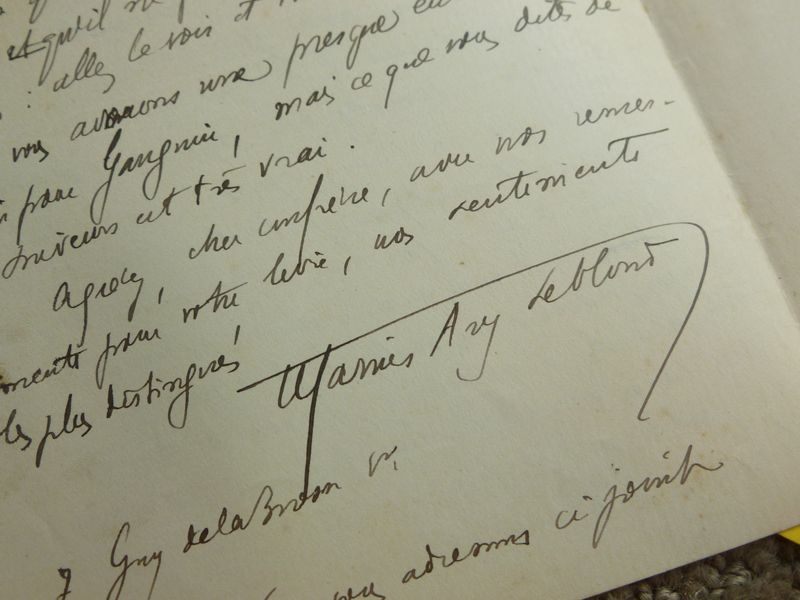 et qu'il
: allez le voir et
vous avions une presque
pour Gauguin, mais ce que vous dites de
suiveurs est très vrai.
Agréez, cher confrère, avec nos remer-
ciments pour votre livre, nos sentiments
les plus distingués
Marius Ary Leblond
7 Guy de la Brosse Ve.
vous adressons ci joint